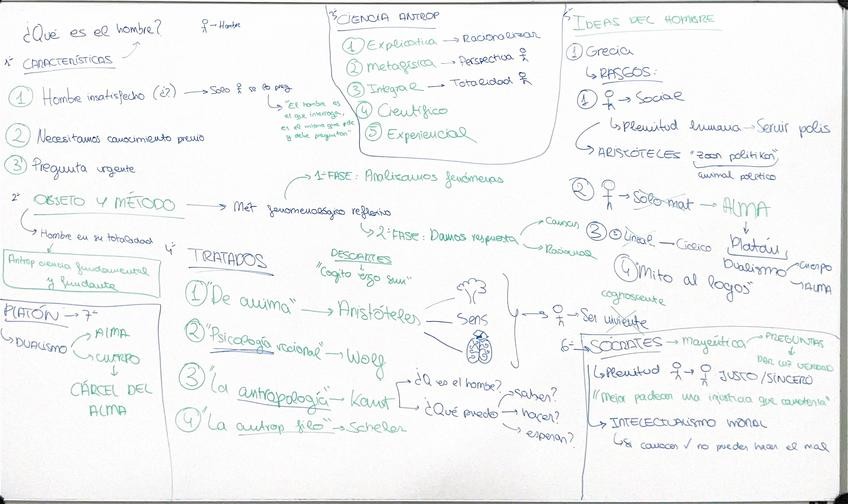 ¿Qué es el hombre?
→ Hombre
1º CARACTERÍSTICAS
① Hombre insatisfecho (¿?) → Solo se lo preg
"El hombre es
el que interroga,
es el mismo que pde
y debe preguntar"
② Necesitamos conocimiento previo
③ Pregunta urgente
2º OBJETO Y MÉTODO → Mét fenomenológico reflexivo
1ª FASE: Analizamos fenómenos
2ª FASE: Damos respuesta
Causas
Racional
Hombre en su totalidad
Antrop ciencia fundamental
y fundante
3º CIENCIA ANTROP
① Explicativa → Racionalizar
② Metafísica → Perspectiva
③ Integral → Totalidad
④ Científico
⑤ Experiencial
4º TRATADOS
① "De anima" → Aristóteles
Sens
→ Ser viviente
cognoscente
DESCARTES
"Cogito ergo sum"
② "Psicología racional" → Wolf
③ "La antropología" → Kant
¿Q es el hombre?
¿Qué puedo
saber?
hacer?
esperar?
④ "La antrop filo" → Scheler
5º IDEAS DEL HOMBRE
① Grecia
RASGOS:
① → Social
Plenitud humana → Servir polis
ARISTÓTELES "Zoon politikon"
animal político
② → Sólo mat → ALMA
Platón
Dualismo
CUERPO
ALMA
③ Lineal → Cíclico
④ "Mito al logos"
6º SÓCRATES → Mayéutica → PREGUNTAS
DAR LUZ VERDAD
Plenitud → JUSTO/SINCERO
"Mejor padecer una injusticia que cometerla"
INTELECTUALISMO MORAL
Si conoces ✓ no puedes hacer el mal
PLATÓN → 7º
DUALISMO
ALMA
CUERPO
CÁRCEL DEL
ALMA